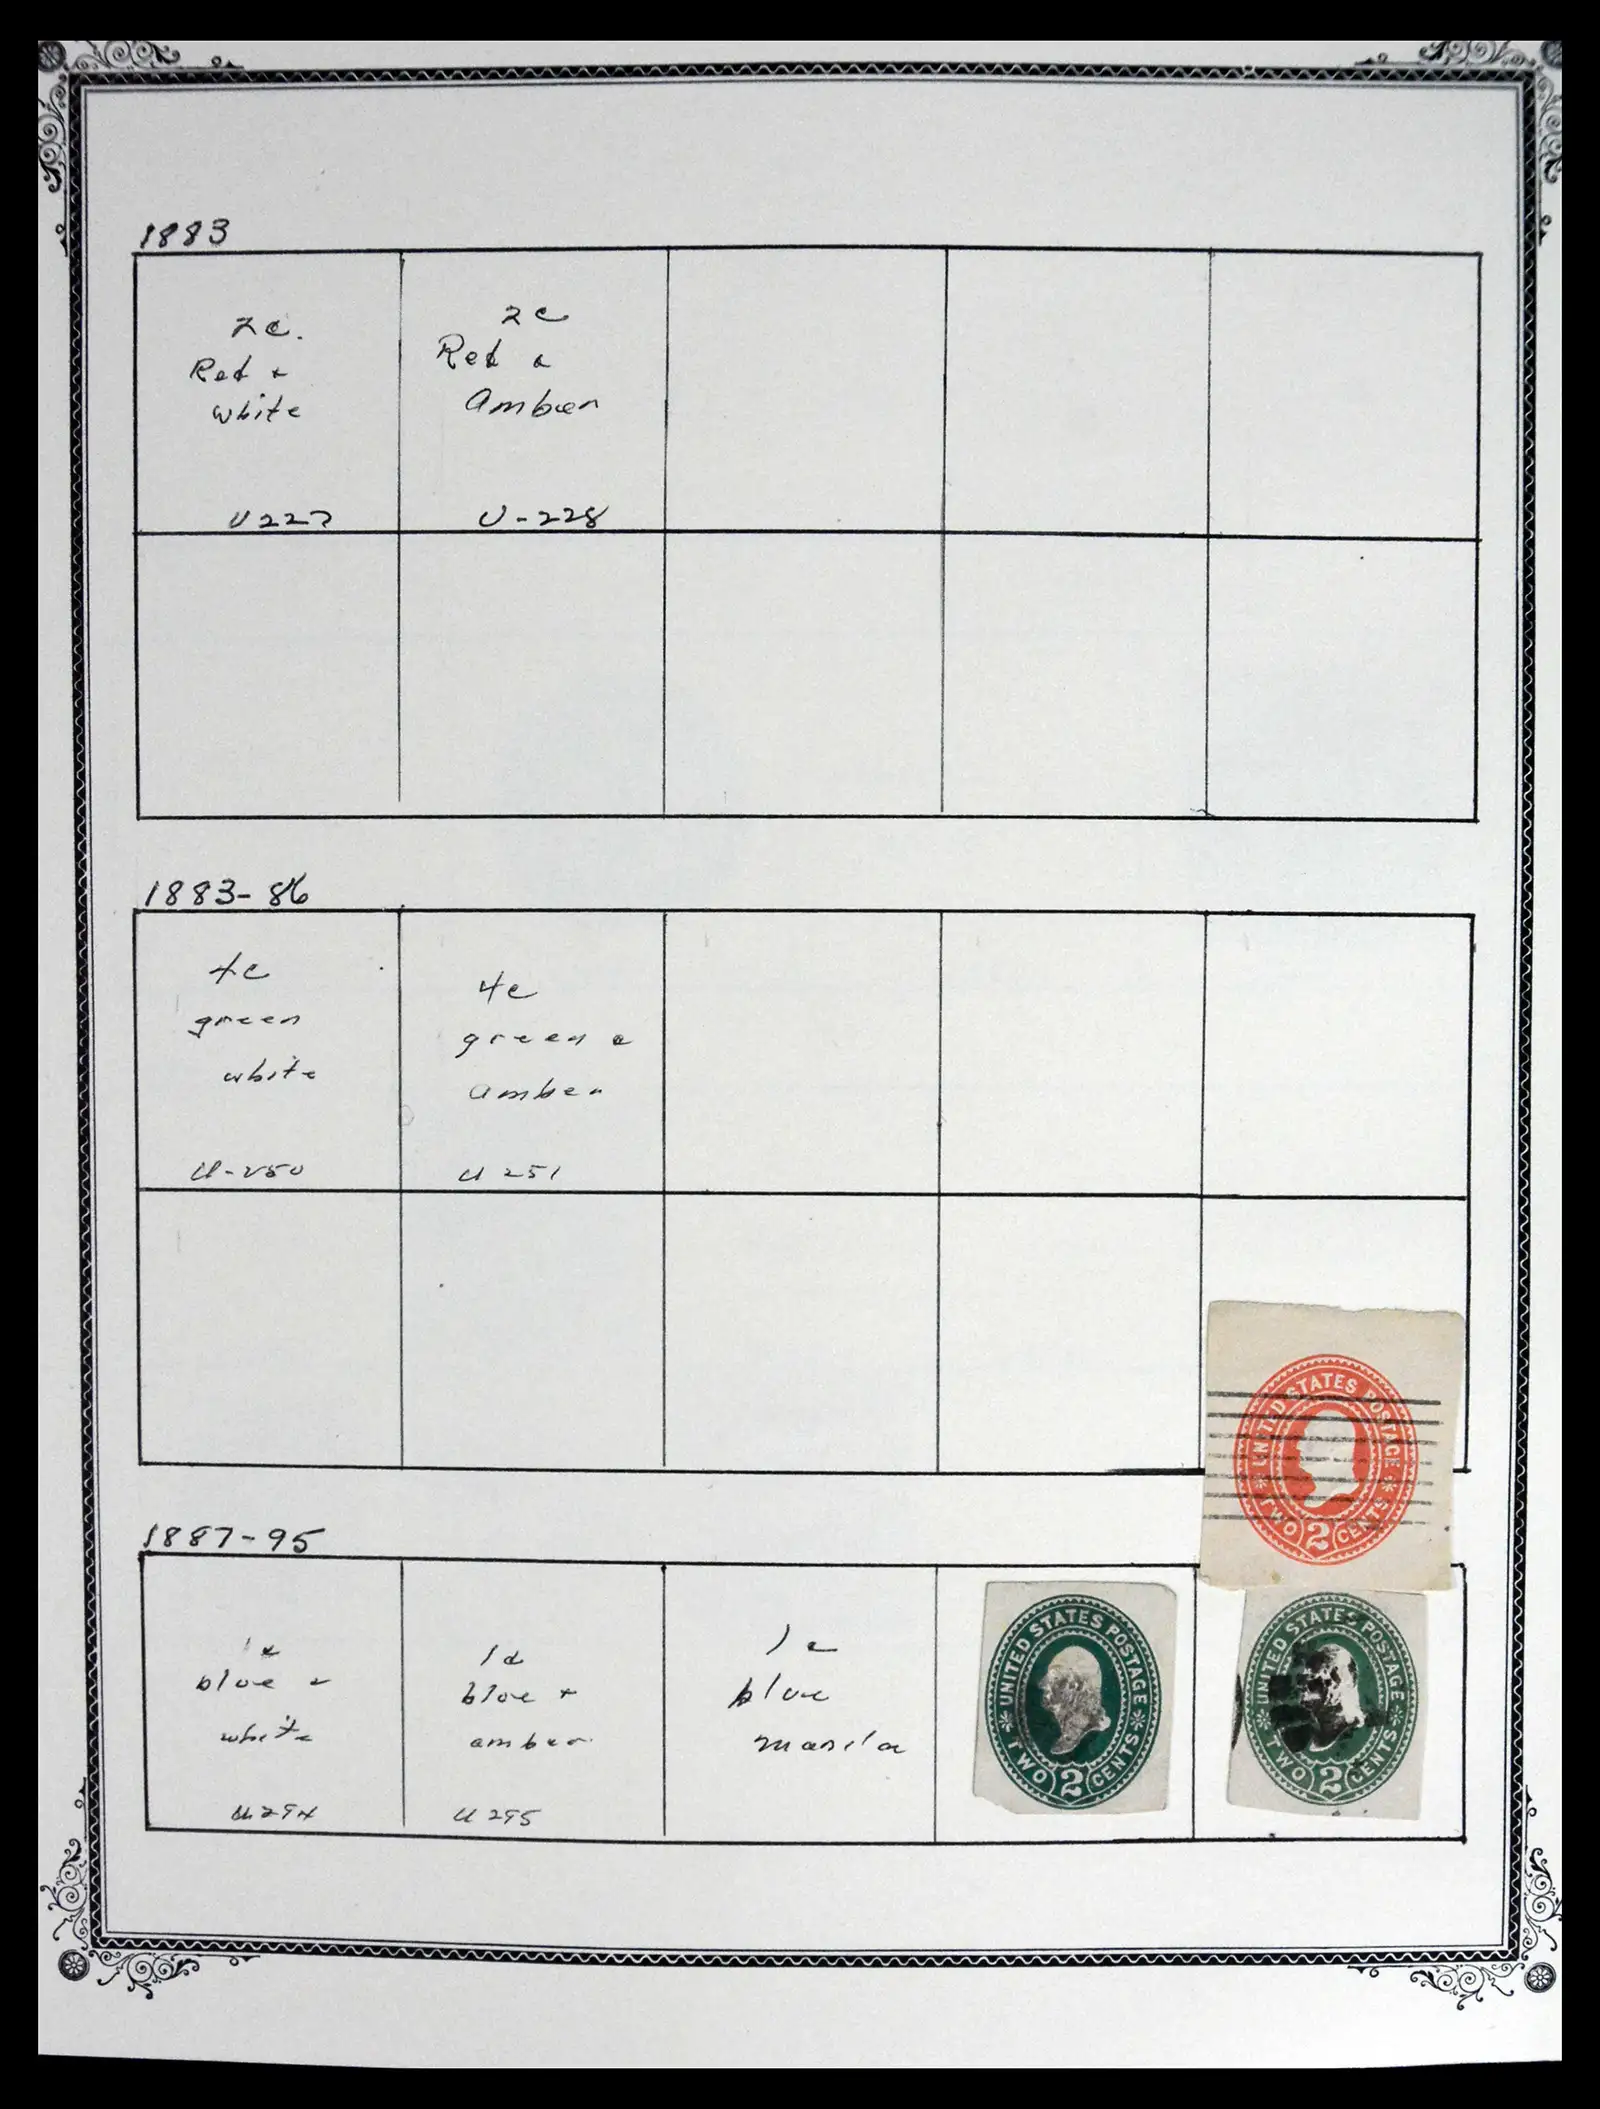 1883
2c.
Red &
white
U227
2c
Red &
Amber
U-228
1883-86
4c
green
white
U-250
4c
green &
amber
U 251
UNITED STATES POSTAGE
TWO 2 CENTS
1887-95
1c
blue &
white
U294
1c
blue &
amber
U 295
1c
blue
manila
UNITED STATES POSTAGE
TWO 2 CENTS
UNITED STATES POSTAGE
TWO 2 CENTS